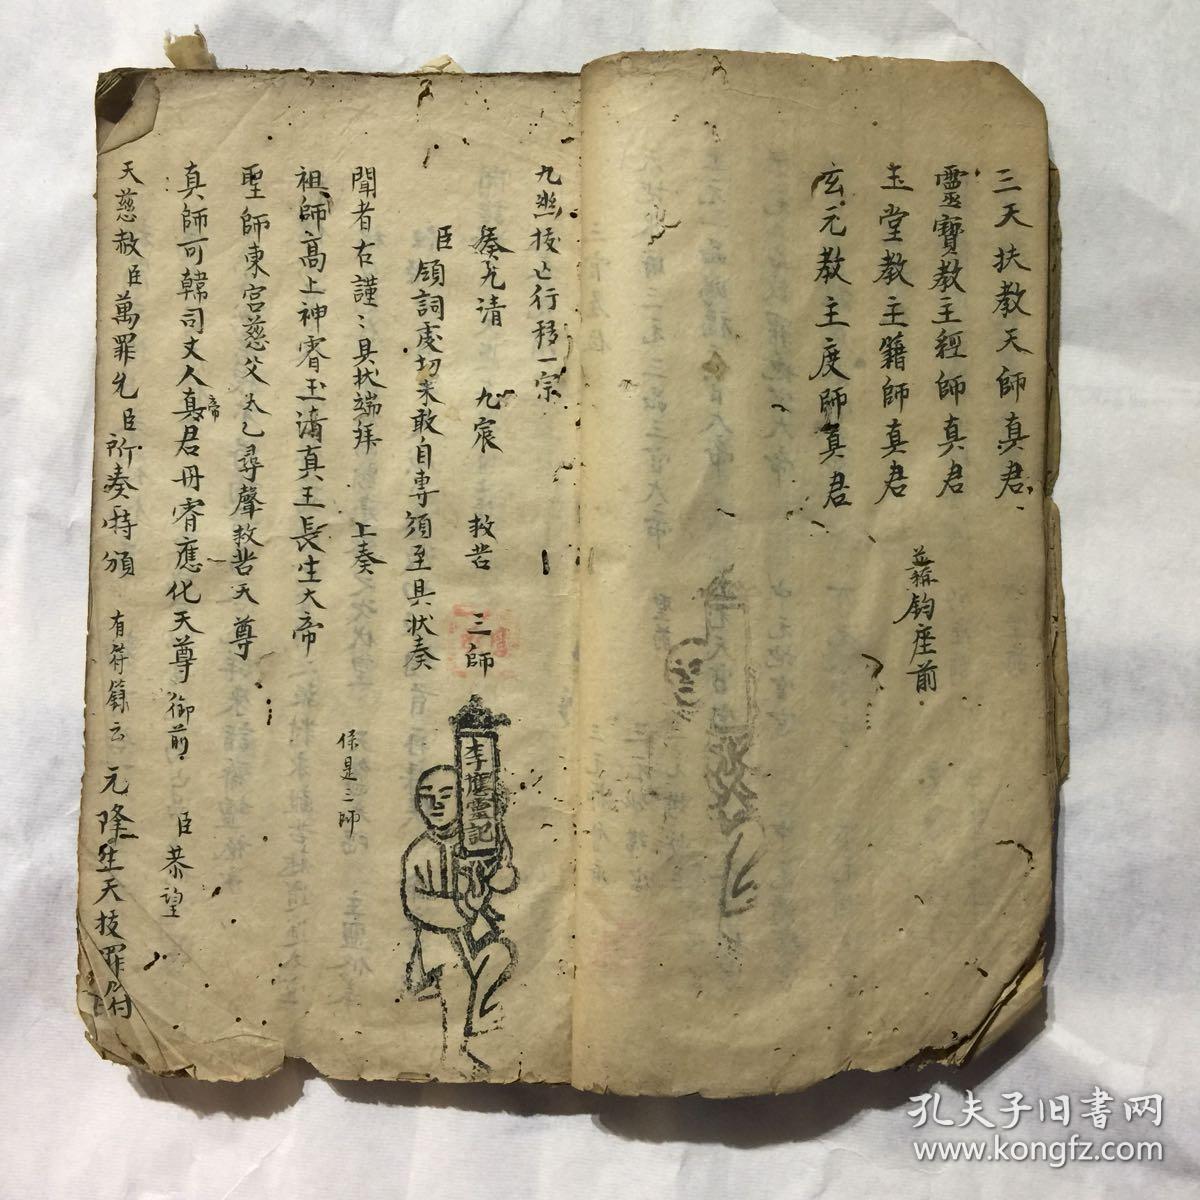 三天扶教天師真君
靈寶教主經師真君
玉堂教主籍師真君
玄元教主度師真君
鈞座前
九㷼拔亡行移一宗
奏九清 九宸 救苦 三師
臣領詞虔切未敢自專須至具狀奏
聞者右謹〻具狀端拜 上奏
保是三師
祖師高上神霄玉清真王長生大帝
聖師東宮慈父太乙尋聲救苦天尊
真師可韓司丈人真君丹霄應化天尊御前 臣恭望
帝
天慈赦臣萬罪允臣所奏特頒 有符籙云 元降生天拔罪
李應靈記
孔夫子旧書网
www.kongfz.com